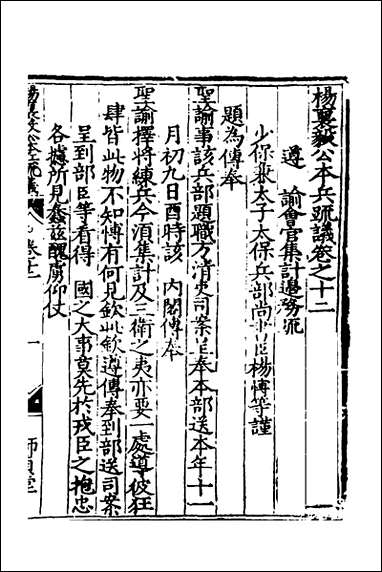 楊襄毅公本兵疏議卷之十二
遵　諭會官集計邊務疏
少保兼太子太保兵部尚書臣楊愽等謹
題為傳奉
聖諭事該兵部題職方清吏司案呈奉本部送本年十一
月初九日酉時該　内閣傳奉
聖諭擇將練兵今須集計及三衛之夷亦要一處導彼狂
肆皆此物不知愽有何見欽此欽遵傳奉到部送司案
呈到部臣等看得　國之大事莫先於戎臣之抱忠
各據所見蠢玆醜虜仰仗
楊襄毅公本兵疏議　卷十二　一　師貞堂